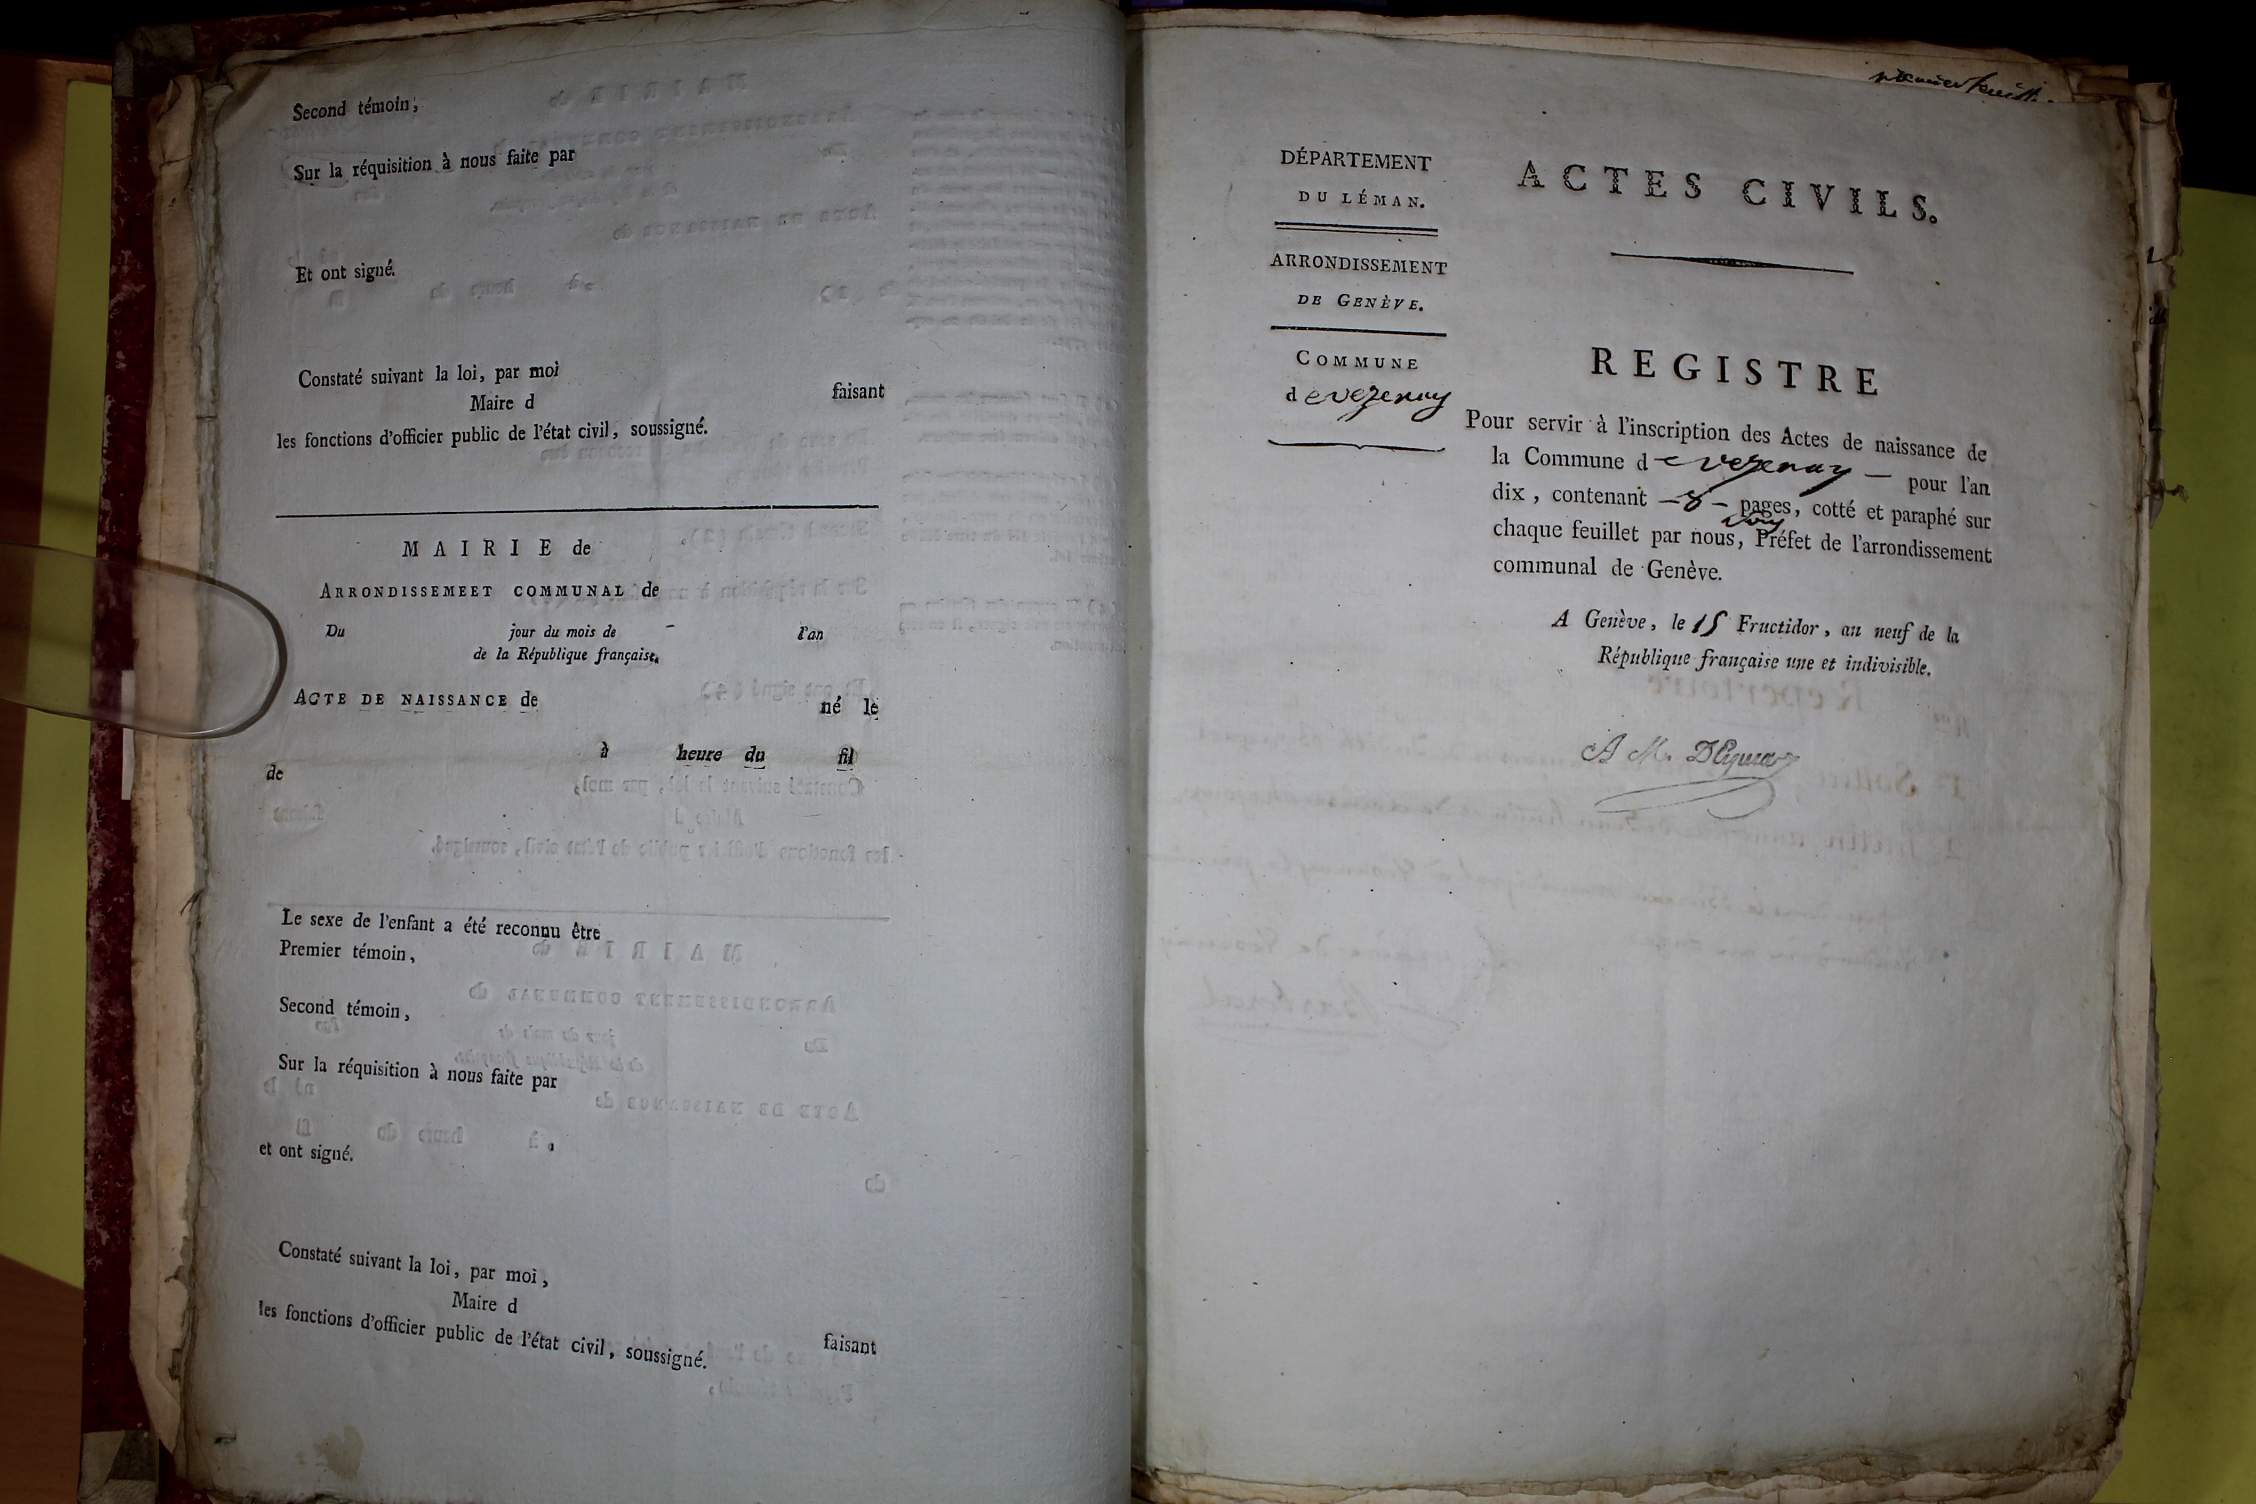 Second témoin,
Sur la réquisition à nous faite par
Et ont signé.
Constaté suivant la loi, par moi
Maire d faisant
les fonctions d'officier public de l'état civil, soussigné.
MAIRIE de
ARRONDISSEMEET COMMUNAL de
Du jour du mois de l'an
de la République française.
ACTE DE NAISSANCE de né le
à heure du fil
de
Le sexe de l'enfant a été reconnu être
Premier témoin,
Second témoin,
Sur la réquisition à nous faite par
et ont signé.
Constaté suivant la loi, par moi,
Maire d faisant
les fonctions d'officier public de l'état civil, soussigné.
premier feuillet.
DÉPARTEMENT
DU LÉMAN.
ARRONDISSEMENT
DE GENÈVE.
COMMUNE
d evezenay
ACTES CIVILS.
REGISTRE
Pour servir à l'inscription des Actes de naissance de
la Commune d evezenay — pour l'an
dix, contenant — 8 — pages, cotté et paraphé sur
chaque feuillet par nous, Préfet de l'arrondissement
communal de Genève.
A Genève, le 15 Fructidor, an neuf de la
République française une et indivisible.
A. M.
Repertoire